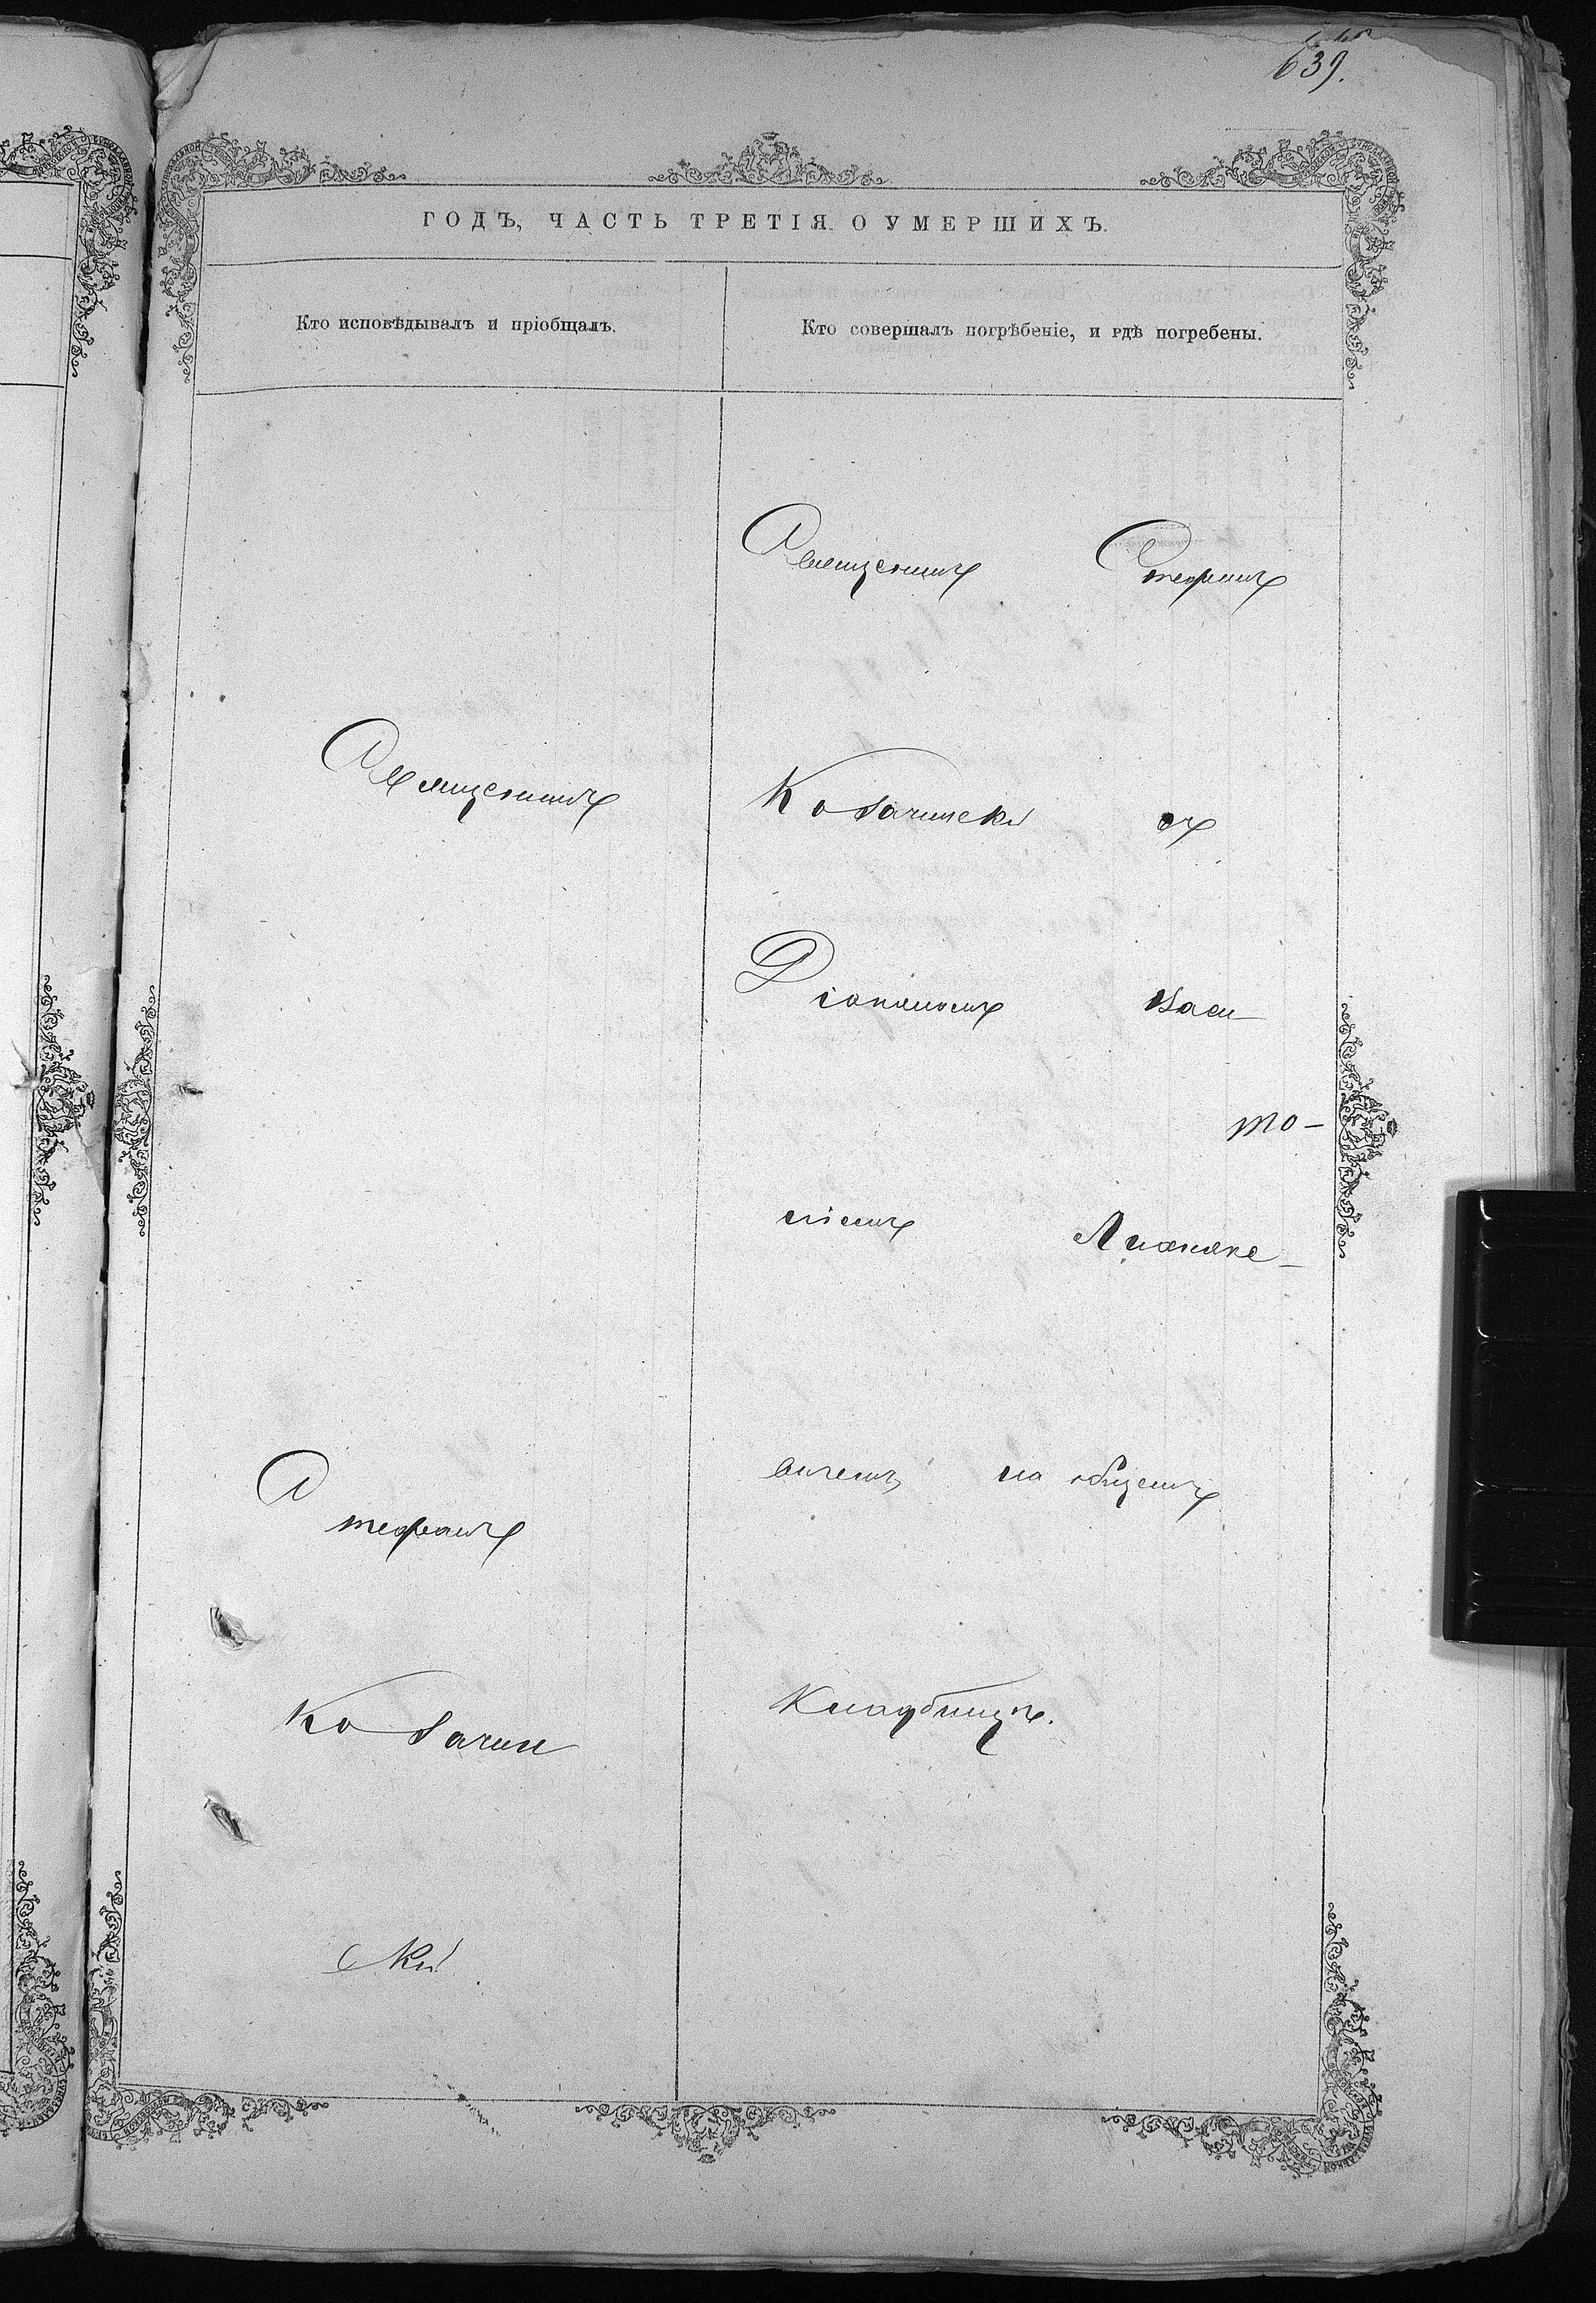 639.
ГОДЪ, ЧАСТЬ ТРЕТІЯ О УМЕРШИХЪ.
Кто исповѣдывалъ и пріобщалъ.
Кто совершалъ погрѣбеніе, и гдѣ погребены.
Священникъ
Стефанъ
Кобачин
скій
Священникъ Стефанъ
Кобачинскій съ
Діакономъ Васи-
ліемъ
на общемъ
Кладбищѣ.